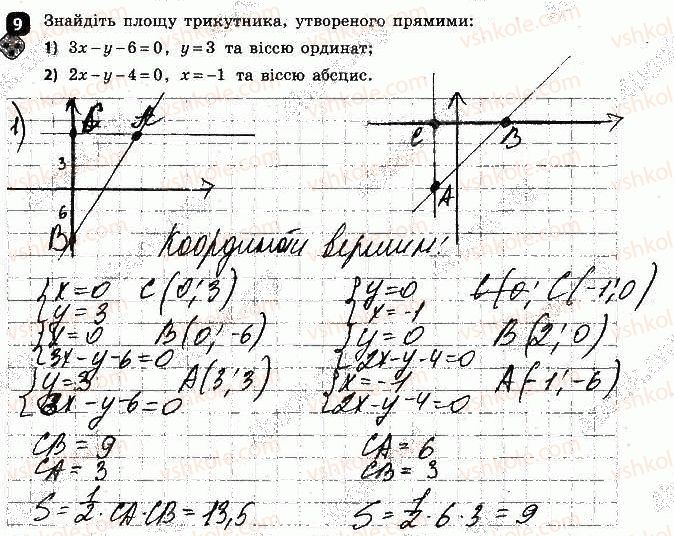 9 Знайдіть площу трикутника, утвореного прямими:
1) 3x – y – 6 = 0, y = 3 та віссю ординат;
2) 2x – y – 4 = 0, x = –1 та віссю абсцис.
1)
C A
3
6
B
C B
A
Координати вершин:
{ x = 0
y = 3 C(0; 3)
{ x = 0
3x – y – 6 = 0 B(0; –6)
{ y = 3
3x – y – 6 = 0 A(3; 3)
CB = 9
CA = 3
S = 1/2 · CA · CB = 13,5
{ y = 0
x = –1 C(–1; 0)
{ y = 0
2x – y – 4 = 0 B(2; 0)
{ x = –1
2x – y – 4 = 0 A(–1; –6)
CA = 6
CB = 3
S = 1/2 · 6 · 3 = 9
vshkole.com